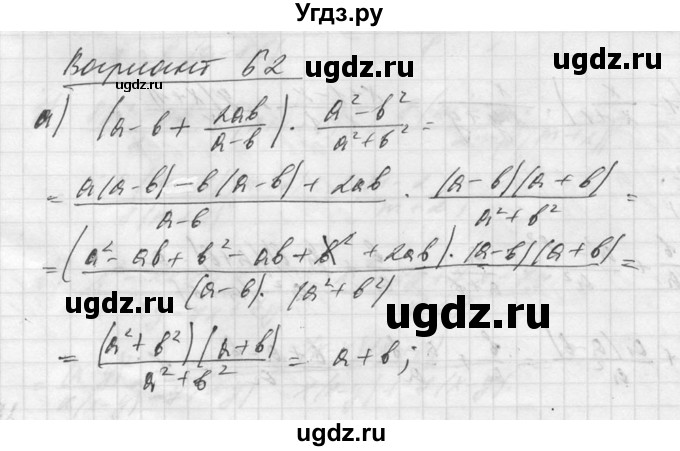 Угдз.ру
Вариант Б2
ugdz.ru ugdz.ru ugdz.ru
а) (a-b + 2ab/(a-b)) · (a²-b²)/(a²+b²) =
= (a(a-b)-b(a-b)+2ab)/(a-b) · ((a-b)(a+b))/(a²+b²) =
= ((a²-ab+b²-ab+b²+2ab)·(a-b)(a+b))/((a-b)·(a²+b²)) =
ugdz.ru ugdz.ru ugdz.ru
= ((a²+b²)(a+b))/(a²+b²) = a+b;
ugdz.ru
ugdz.ru